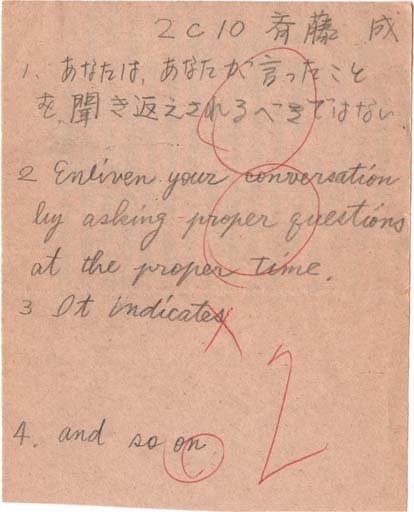 2C10 斉藤 成
1. あなたは、あなたが言ったこと
を聞き返えされるべきではない
2 Enliven your conversation
by asking proper questions
at the proper time.
3 It indicates
4. and so on
2